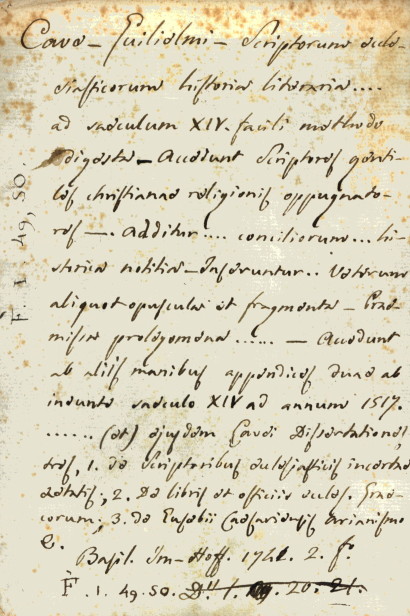 Cave – Guilielmi – Scriptorum eccle-
siasticorum historia literaria ....
ad saeculum XIV. facili methodo
digesta – Accedunt Scriptores genti-
les christianae religionis oppugnato-
res –. Additur .... conciliorum ... hi-
storica notitia – Inseruntur .. Veterum
aliquot opuscula et fragmenta – Prae-
missa prolegomena ...... – Accedunt
ab aliis manibus appendices duae ab
ineunte saeculo XIV ad annum 1517.
...... (et) ejusdem Cavei Dissertationes
tres, 1. de Scriptoribus ecclesiasticis incertae
aetatis; 2. De libris et officiis eccles. Grae-
corum; 3. de Eusebii Caesariensis arianismo
&.
Basil. Im-Hoff. 1741. 2. f.
F. 1. 49. 50.
F. 1. 49, 50.